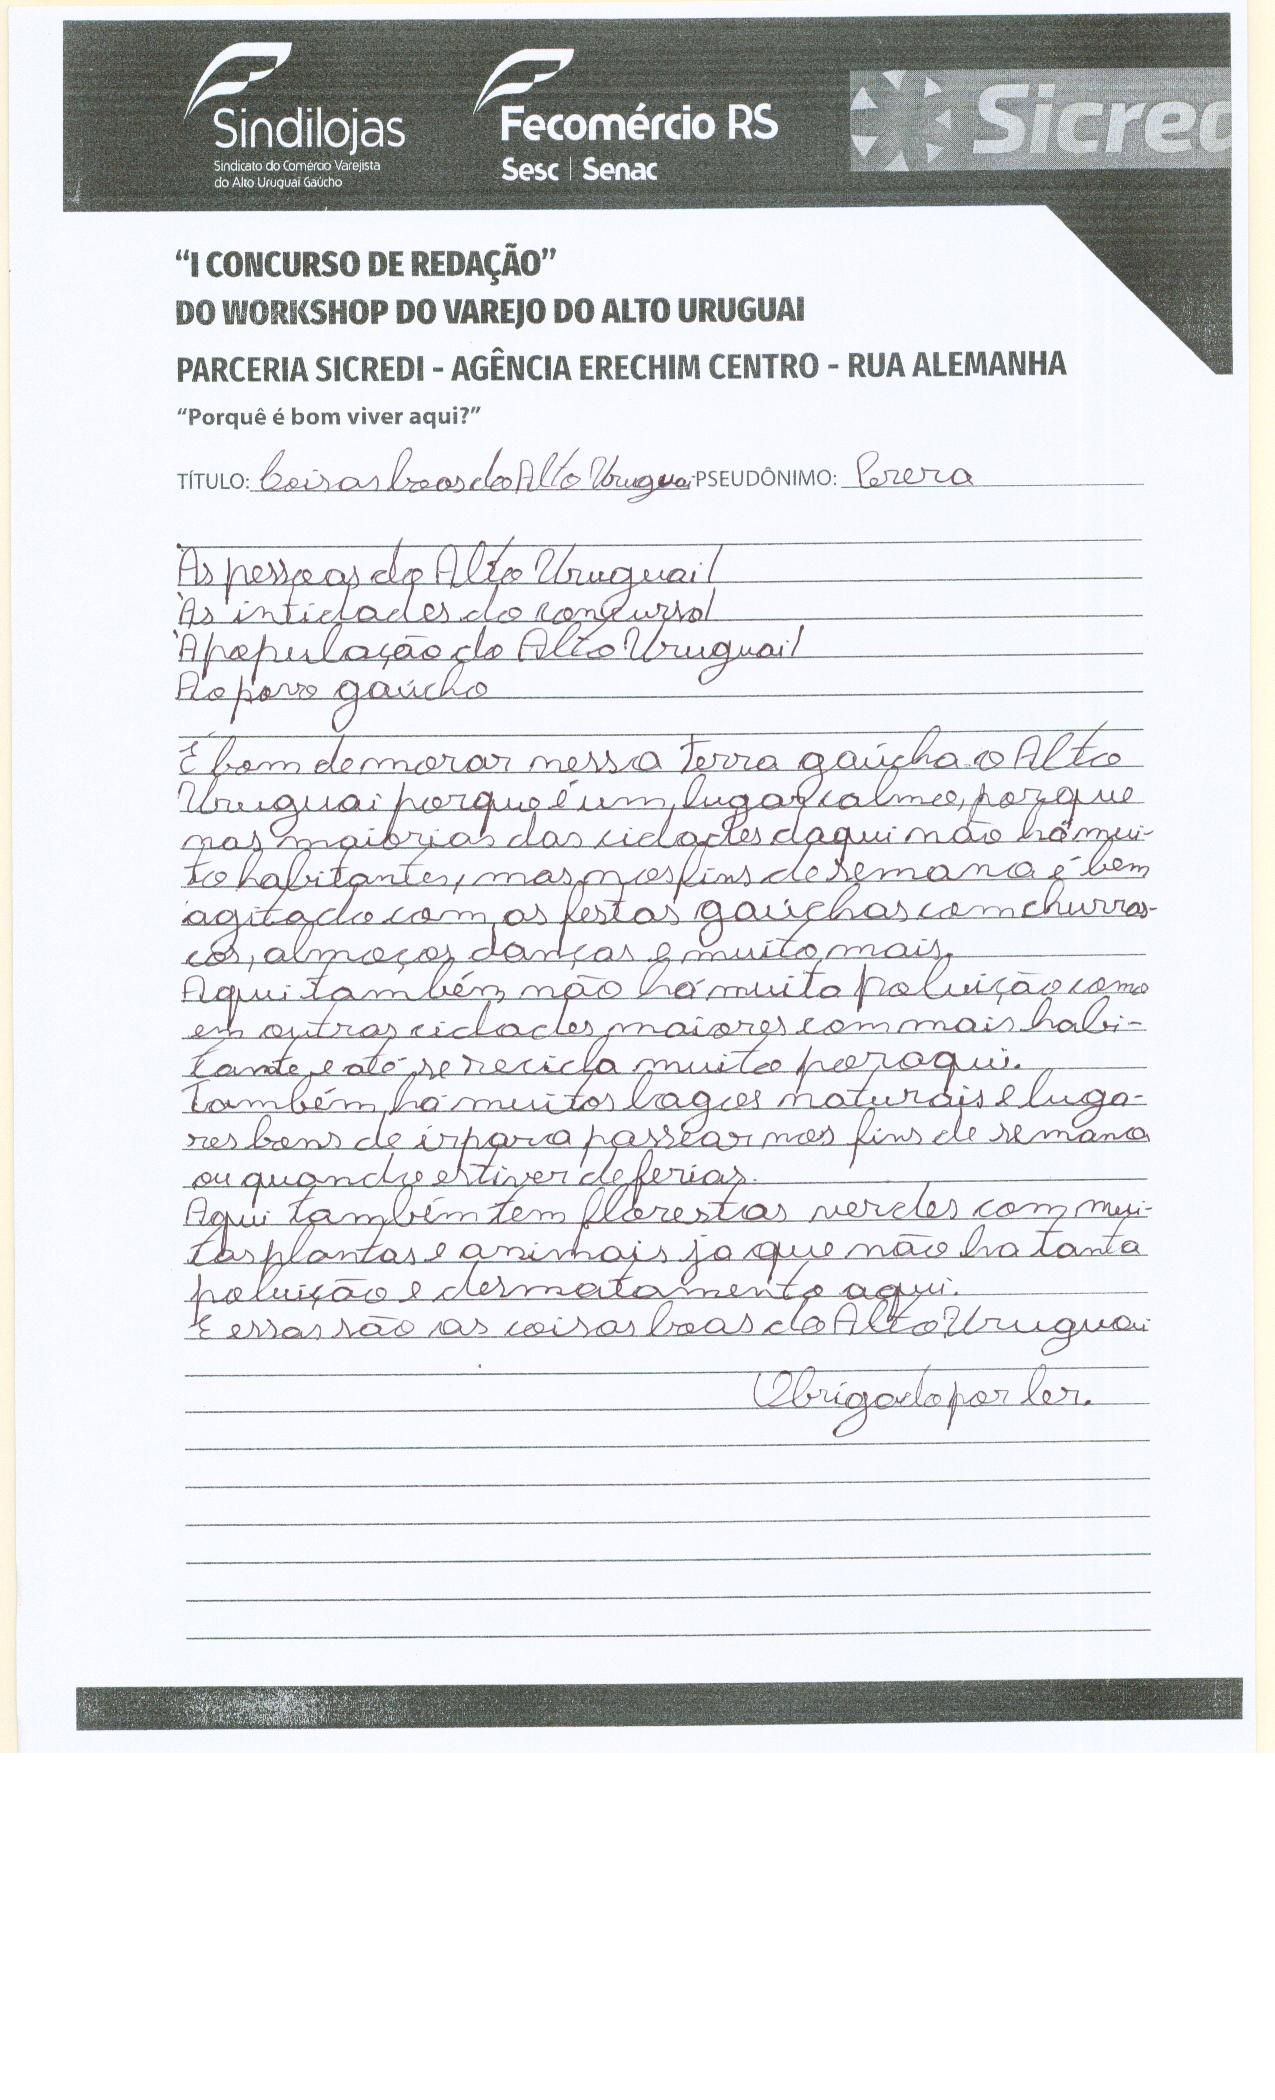 Sindilojas
Sindicato do Comércio Varejista
do Alto Uruguai Gaúcho
Fecomércio RS
Sesc | Senac
Sicred
“I CONCURSO DE REDAÇÃO”
DO WORKSHOP DO VAREJO DO ALTO URUGUAI
PARCERIA SICREDI - AGÊNCIA ERECHIM CENTRO - RUA ALEMANHA
“Porquê é bom viver aqui?”
TÍTULO: Coisas boas do Alto Uruguai PSEUDÔNIMO: Perera
Às pessoas do Alto Uruguai!
Às intidades do concurso!
À população do Alto Uruguai!
Ao povo gaúcho
É bom de morar nessa terra gaúcha o Alto
Uruguai porque é um lugar calmo, porque
nas maiorias das cidades daqui não há mui-
to habitantes, mas nos fins de semana é bem
agitado com as festas gaúchas com churras-
cos, almoços, danças e muito mais.
Aqui também não há muita poluição como
em outras cidades maiores com mais habi-
tante, e até se recicla muito por aqui.
Também há muitos lagos naturais e luga-
res bons de ir para passear nos fins de semana
ou quando estiver de ferias.
Aqui também tem florestras verdes com mui-
tas plantas e animais ja que não ha tanta
poluição e desmatamento aqui.
E essas são as coisas boas do Alto Uruguai
Obrigado por ler.